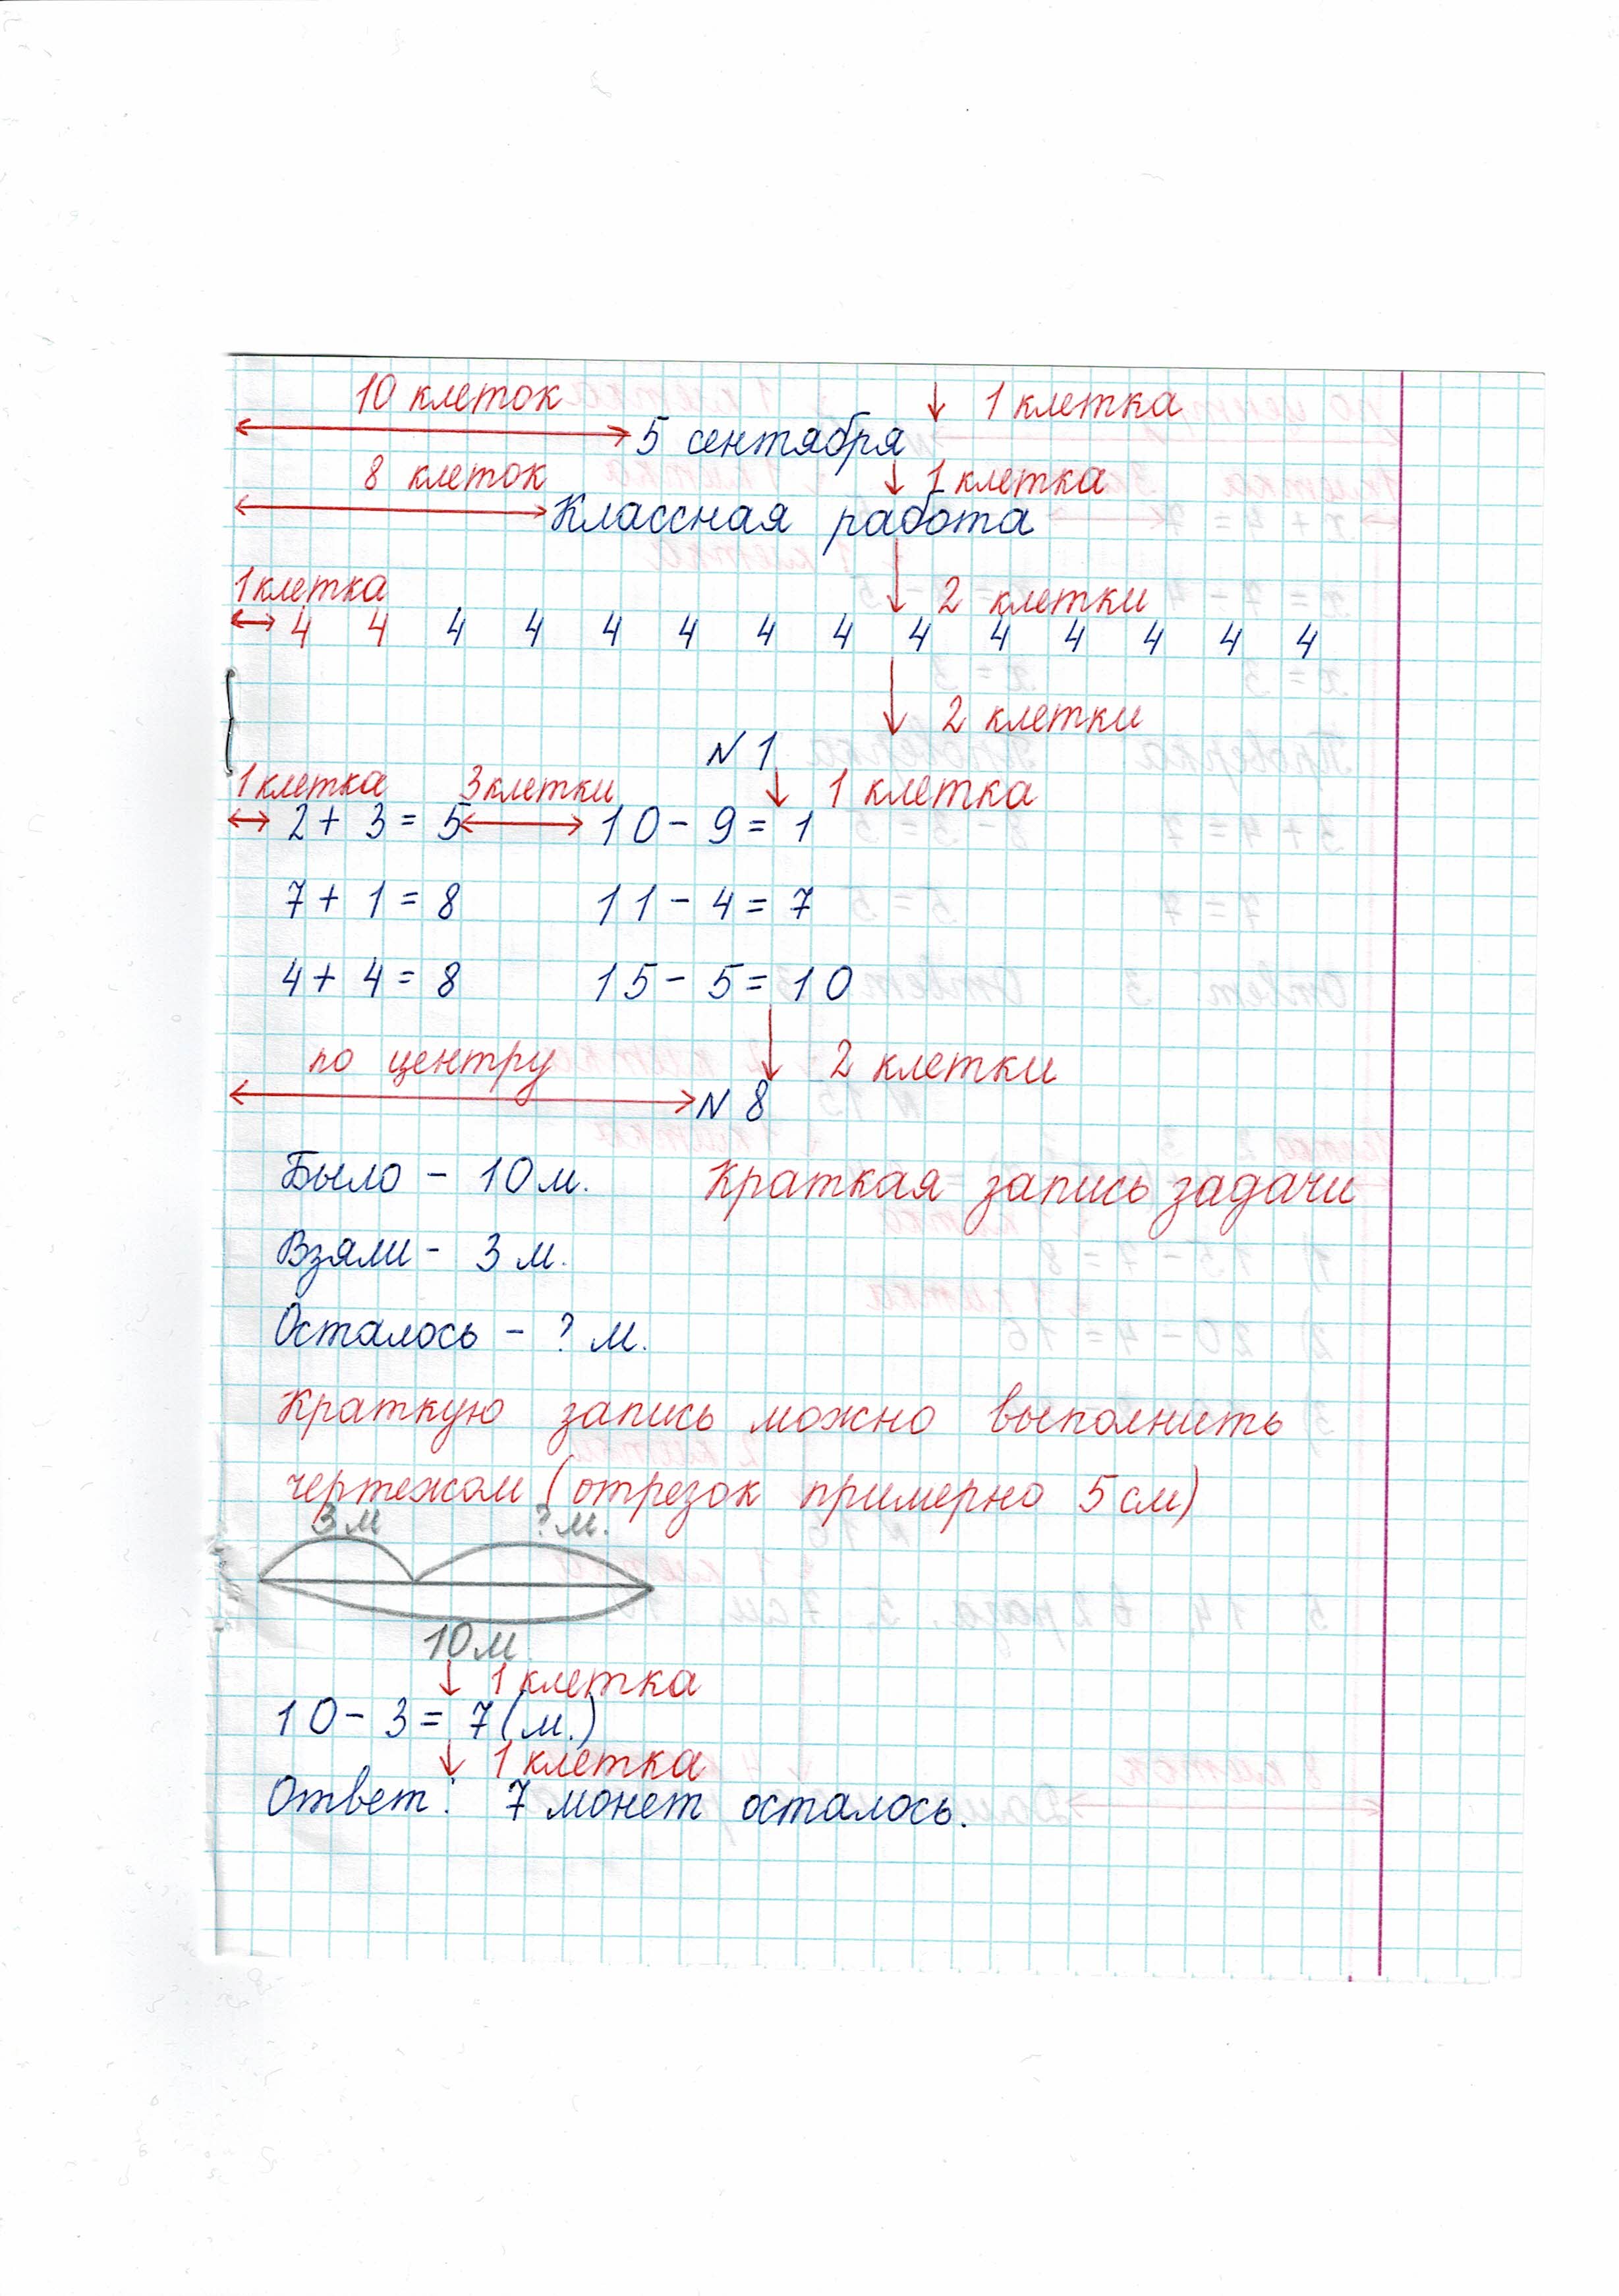 10 клеток ↓ 1 клетка
5 сентября
8 клеток ↓ 1 клетка
Классная работа
1 клетка ↓ 2 клетки
4 4 4 4 4 4 4 4 4 4 4 4 4 4
↓ 2 клетки
N 1
1 клетка 3 клетки ↓ 1 клетка
2 + 3 = 5 10 - 9 = 1
7 + 1 = 8 11 - 4 = 7
4 + 4 = 8 15 - 5 = 10
по центру ↓ 2 клетки
N 8
Было - 10 м. Краткая запись задачи
Взяли - 3 м.
Осталось - ? м.
Краткую запись можно выполнить
чертежом (отрезок примерно 5 см)
3 м ? м.
10 м
↓ 1 клетка
10 - 3 = 7 (м.)
↓ 1 клетка
Ответ: 7 монет осталось.